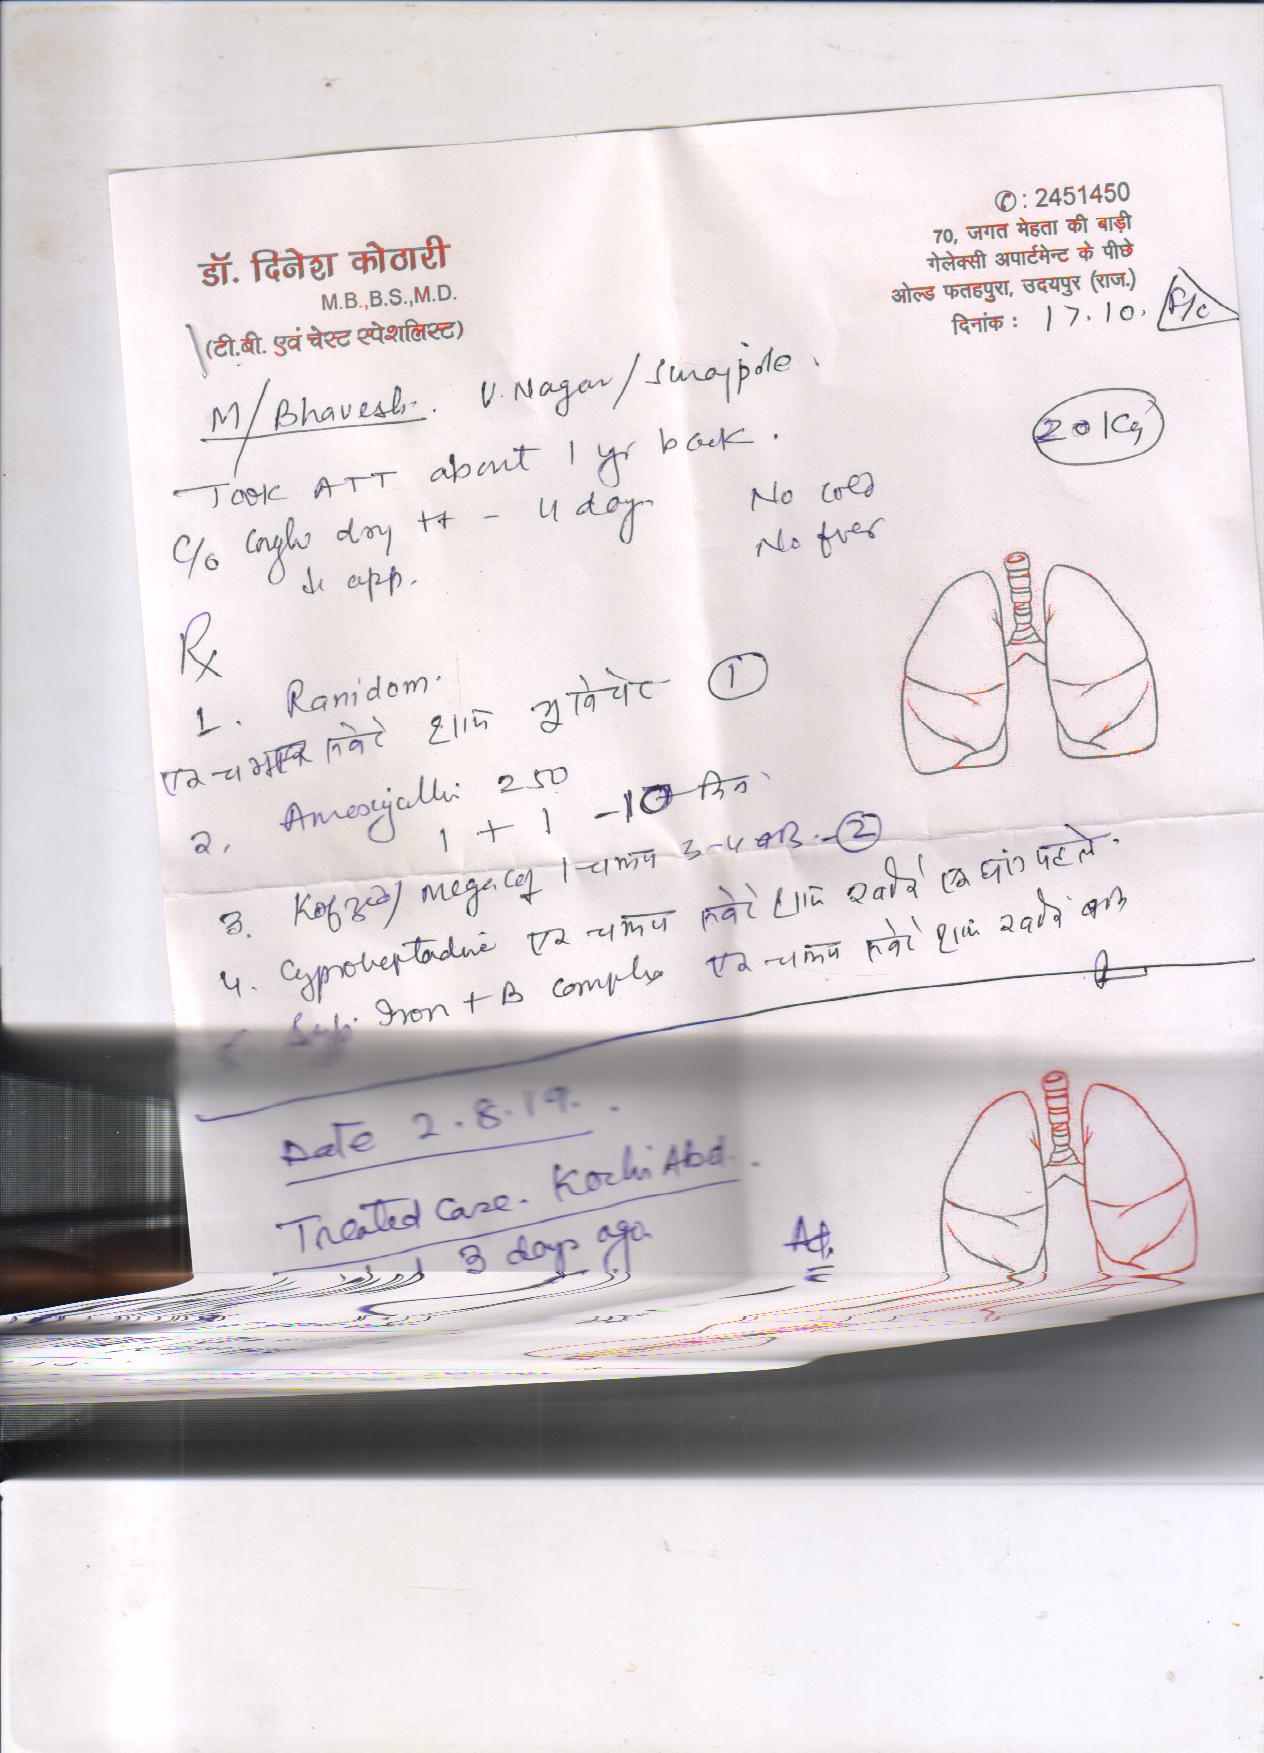 डॉ. दिनेश कोठारी
M.B.,B.S.,M.D.
(टी.बी. एवं चेस्ट स्पेशलिस्ट)
✆ : 2451450
70, जगत मेहता की बाड़ी
गेलेक्सी अपार्टमेन्ट के पीछे
ओल्ड फतहपुरा, उदयपुर (राज.)
दिनांक : 17.10.
M/Bhavesh. U.Nagar/Surajpole.
20 Kg
Took ATT about 1 yr back.
C/o cough dry ++ - 4 days
No cold
No fever
↓ app.
Rx
1. Ranidom.
एक चम्मच सवेरे शाम 1
2. 250
1 + 1 -10 दिन
3. 1 चम्मच 3-4 बार - 2
4. Cyproheptadine एक चम्मच सवेरे शाम खाने से एक घंटा पहले.
5. Syp. Iron + B complex एक चम्मच सवेरे शाम खाने के बाद
Date 2.8.19.
Treated Case. Koch's Abd.
3 days ago